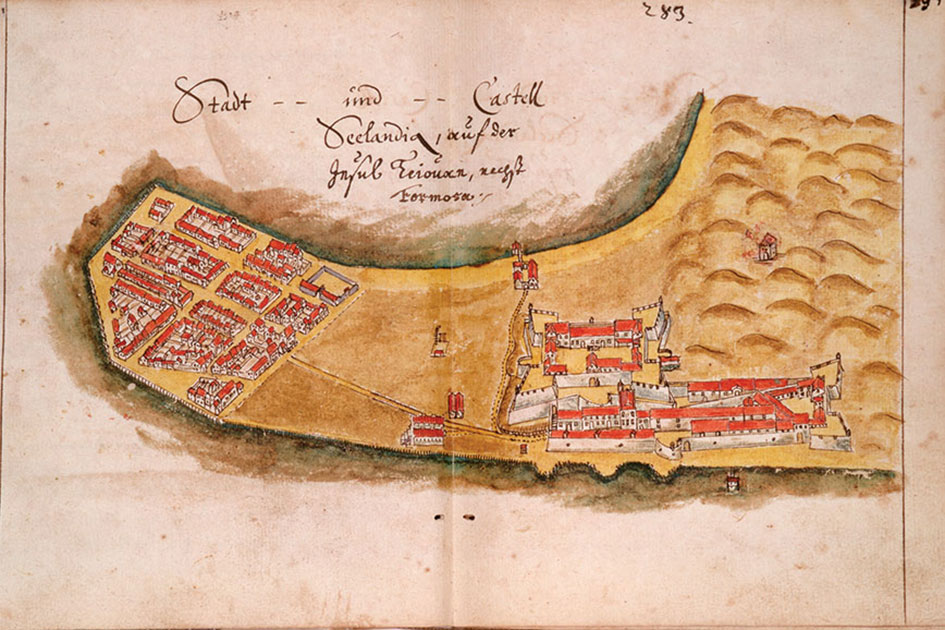 283.
Stadt -- und -- Castell
Seelandia, auf der
Insul Teiouan, nechst
Formosa.